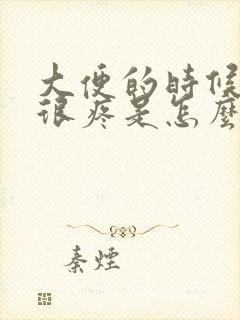 大便的時候
很疼是怎麼
秦煙